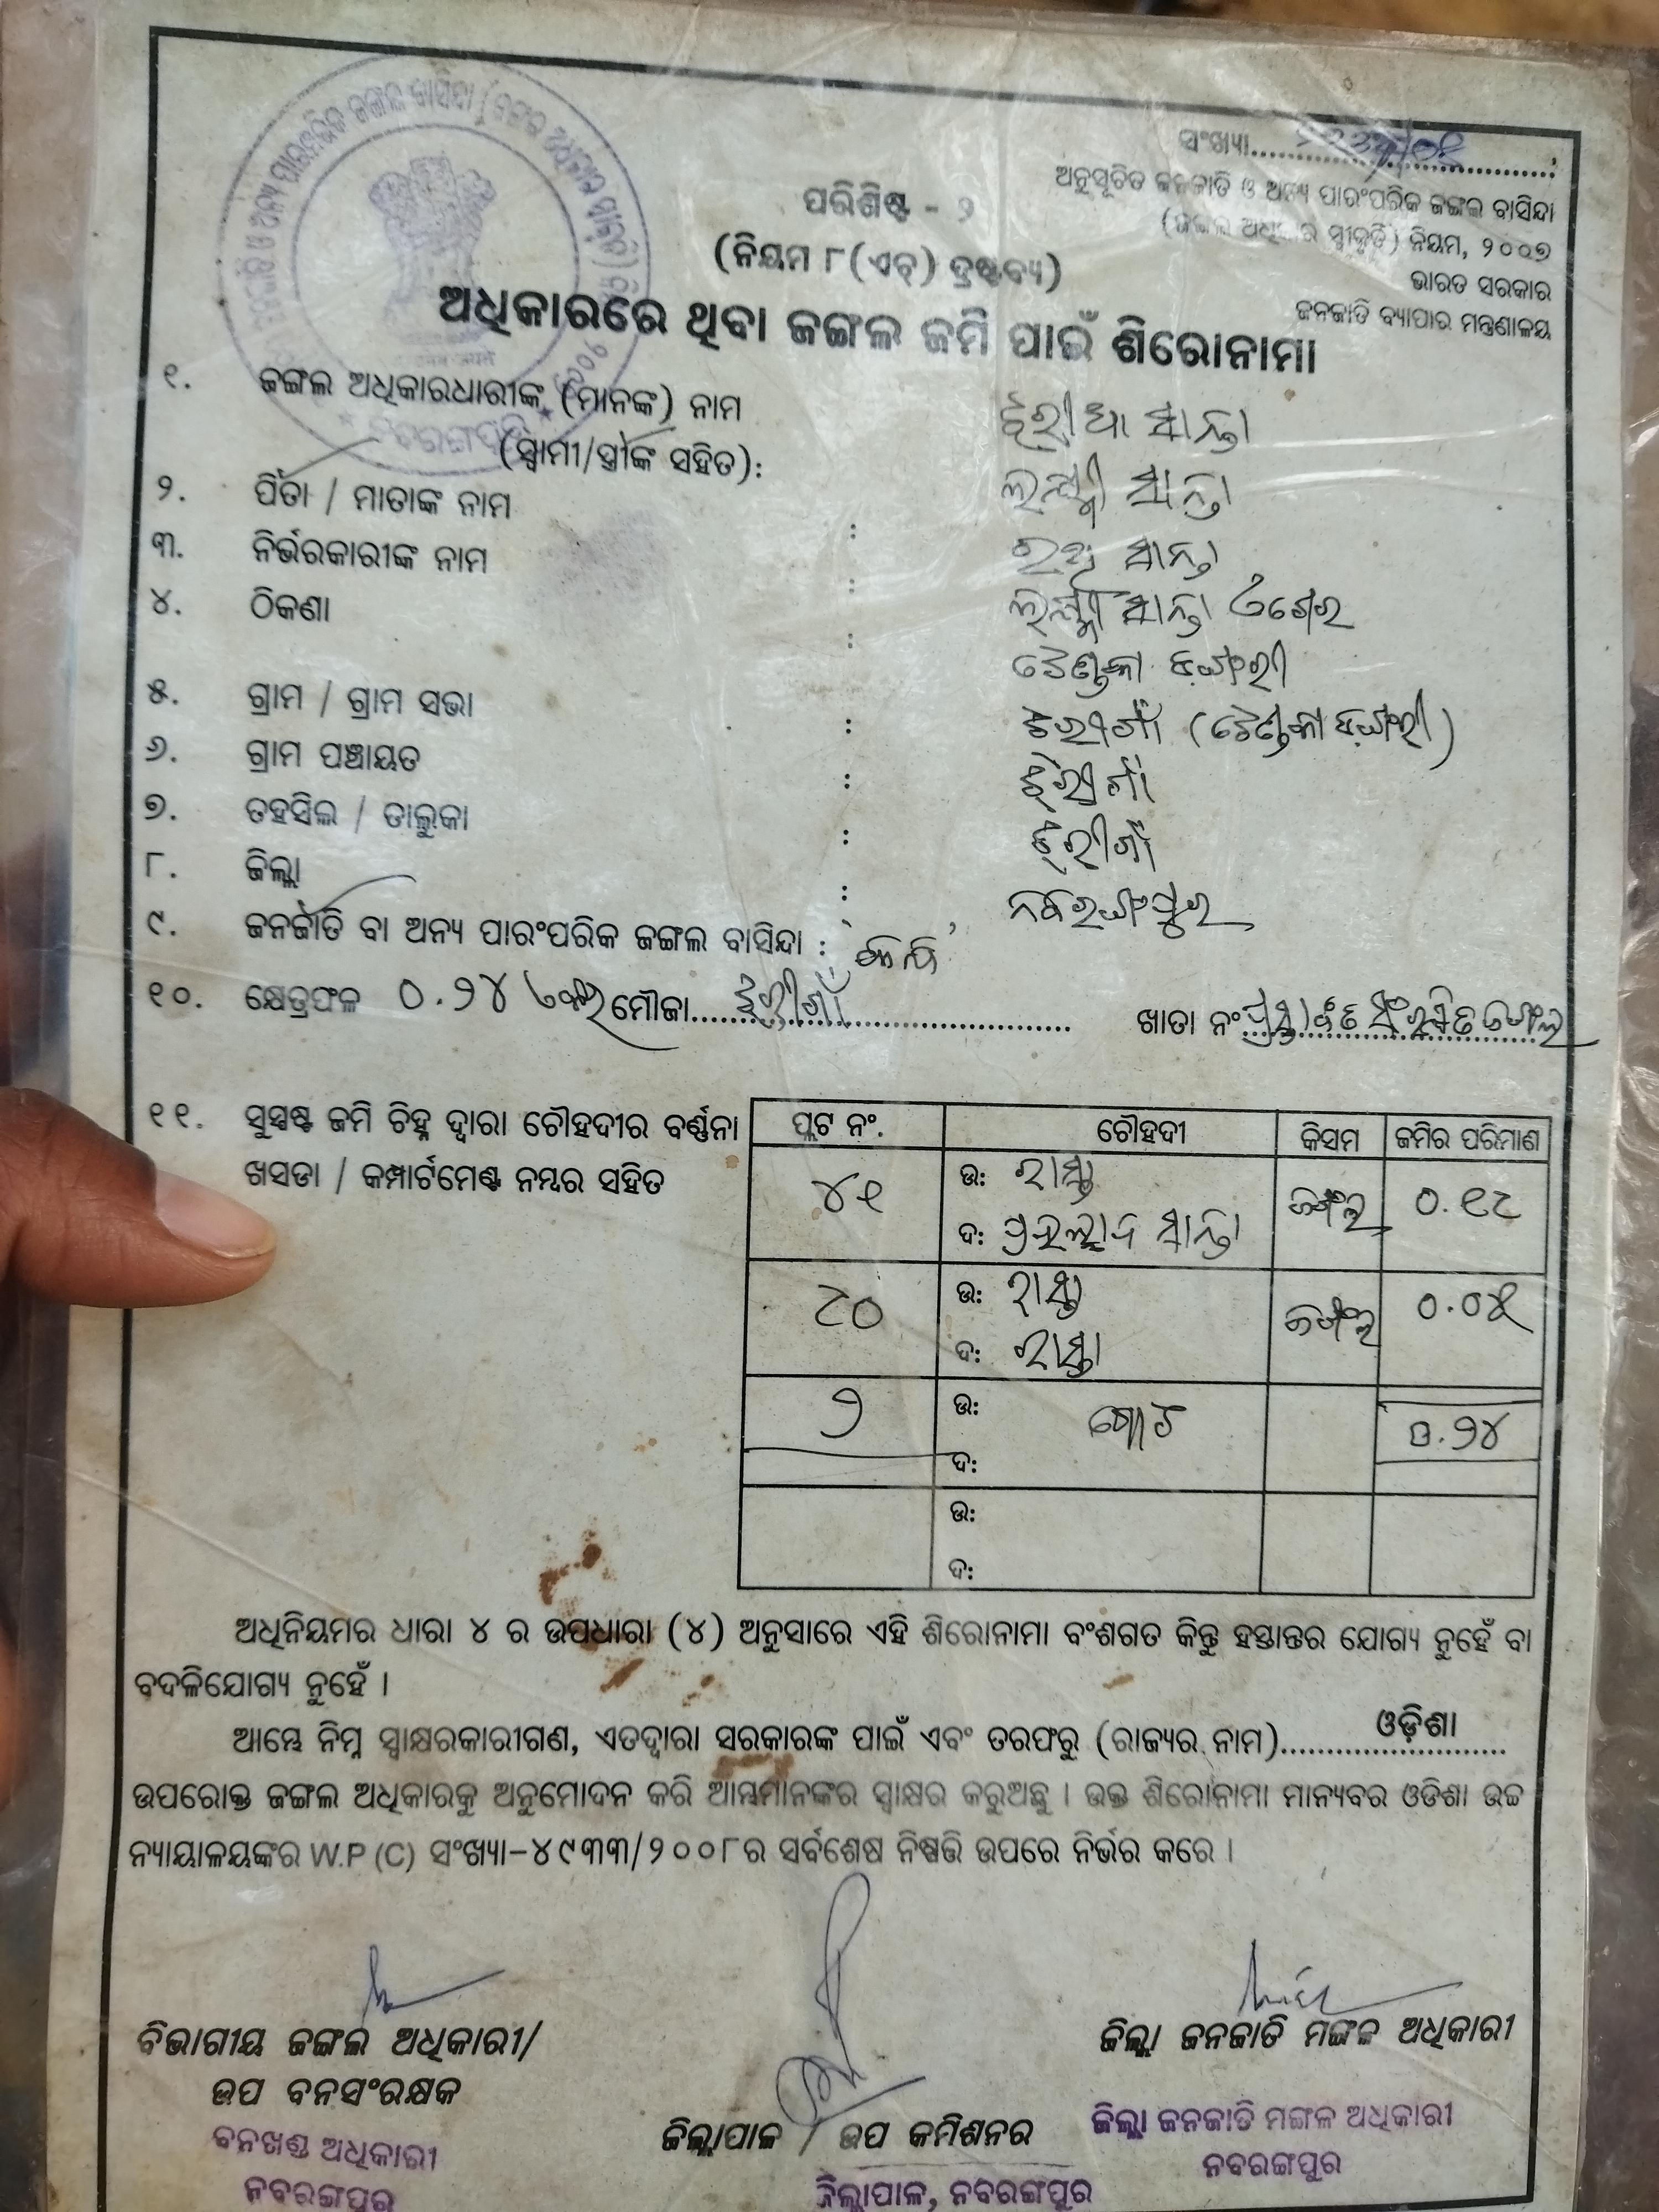 ସଂଖ୍ୟା
ଅନୁସୂଚିତ ଜନଜାତି ଓ ଅନ୍ୟ ପାରଂପରିକ ଜଙ୍ଗଲ ବାସିନ୍ଦା
(ଜଙ୍ଗଲ ଅଧିକାର ସ୍ୱୀକୃତି) ନିୟମ, ୨୦୦୭
ଭାରତ ସରକାର
ଜନଜାତି ବ୍ୟାପାର ମନ୍ତ୍ରଣାଳୟ
ପରିଶିଷ୍ଟ - ୨
(ନିୟମ ୮(ଏଚ୍) ଦ୍ରଷ୍ଟବ୍ୟ)
ଅଧିକାରରେ ଥିବା ଜଙ୍ଗଲ ଜମି ପାଇଁ ଶିରୋନାମା
୧. ଜଙ୍ଗଲ ଅଧିକାରଧାରୀଙ୍କ (ମାନଙ୍କ) ନାମ
(ସ୍ୱାମୀ/ସ୍ତ୍ରୀଙ୍କ ସହିତ): ସାନ୍ତା
୨. ପିତା / ମାତାଙ୍କ ନାମ : ସାନ୍ତା
୩. ନିର୍ଭରକାରୀଙ୍କ ନାମ : ସାନ୍ତା
୪. ଠିକଣା :
୫. ଗ୍ରାମ / ଗ୍ରାମ ସଭା : ଝରୀଗାଁ
୬. ଗ୍ରାମ ପଞ୍ଚାୟତ : ଝରୀଗାଁ
୭. ତହସିଲ / ତାଲୁକା : ଝରୀଗାଁ
୮. ଜିଲ୍ଲା : ନବରଙ୍ଗପୁର
୯. ଜନଜାତି ବା ଅନ୍ୟ ପାରଂପରିକ ଜଙ୍ଗଲ ବାସିନ୍ଦା :
୧୦. କ୍ଷେତ୍ରଫଳ ୦.୨୪ ଏକର ମୌଜା ଝରୀଗାଁ ଖାତା ନଂ ପ୍ରସ୍ତାବିତ ସଂରକ୍ଷିତ ଜଙ୍ଗଲ
୧୧. ସୁସ୍ପଷ୍ଟ ଜମି ଚିହ୍ନ ଦ୍ୱାରା ଚୌହଦୀର ବର୍ଣ୍ଣନା
ଖସଡା / କମ୍ପାର୍ଟମେଣ୍ଟ ନମ୍ବର ସହିତ
ପ୍ଲଟ ନଂ. ଚୌହଦୀ କିସମ ଜମିର ପରିମାଣ
୪୧ ଉ: ରାସ୍ତା ଜଙ୍ଗଲ ୦.୧୯
ଦ: ପ୍ରହଲ୍ଲାଦ ସାନ୍ତା
୯୦ ଉ: ରାସ୍ତା ଜଙ୍ଗଲ ୦.୦୫
ଦ: ରାସ୍ତା
୨ ଉ: ମୋଟ ୦.୨୪
ଦ:
ଉ:
ଦ:
ଅଧିନିୟମର ଧାରା ୪ ର ଉପଧାରା (୪) ଅନୁସାରେ ଏହି ଶିରୋନାମା ବଂଶଗତ କିନ୍ତୁ ହସ୍ତାନ୍ତର ଯୋଗ୍ୟ ନୁହେଁ ବା
ବଦଳିଯୋଗ୍ୟ ନୁହେଁ ।
ଆମ୍ଭେ ନିମ୍ନ ସ୍ୱାକ୍ଷରକାରୀଗଣ, ଏତଦ୍ୱାରା ସରକାରଙ୍କ ପାଇଁ ଏବଂ ତରଫରୁ (ରାଜ୍ୟର ନାମ) ଓଡ଼ିଶା
ଉପରୋକ୍ତ ଜଙ୍ଗଲ ଅଧିକାରକୁ ଅନୁମୋଦନ କରି ଆମ୍ଭମାନଙ୍କର ସ୍ୱାକ୍ଷର କରୁଅଛୁ । ଉକ୍ତ ଶିରୋନାମା ମାନ୍ୟବର ଓଡିଶା ଉଚ୍ଚ
ନ୍ୟାୟାଳୟଙ୍କର W.P (C) ସଂଖ୍ୟା-୪୯୩୩/୨୦୦୮ର ସର୍ବଶେଷ ନିଷ୍ପତ୍ତି ଉପରେ ନିର୍ଭର କରେ ।
ବିଭାଗୀୟ ଜଙ୍ଗଲ ଅଧିକାରୀ/
ଉପ ବନସଂରକ୍ଷକ
ବନଖଣ୍ଡ ଅଧିକାରୀ
ନବରଙ୍ଗପୁର
ଜିଲ୍ଲାପାଳ / ଉପ କମିଶନର
ଜିଲ୍ଲାପାଳ, ନବରଙ୍ଗପୁର
ଜିଲ୍ଲା ଜନଜାତି ମଙ୍ଗଳ ଅଧିକାରୀ
ଜିଲ୍ଲା ଜନଜାତି ମଙ୍ଗଳ ଅଧିକାରୀ
ନବରଙ୍ଗପୁର